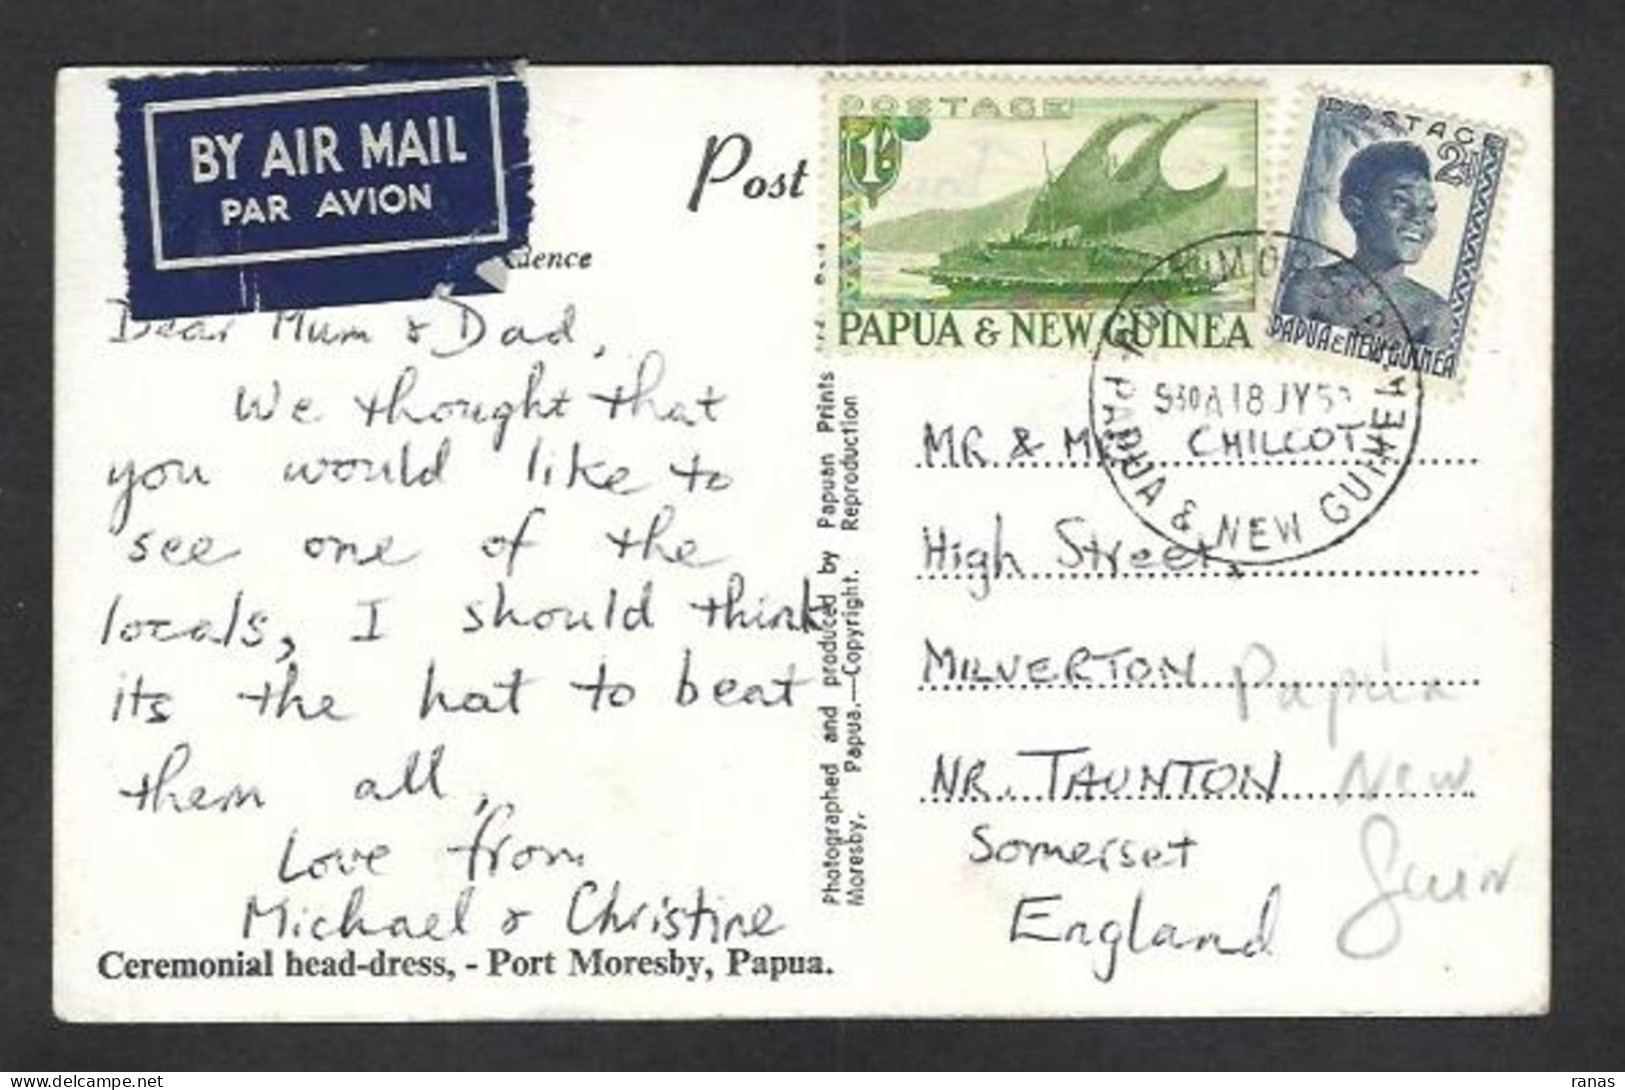 BY AIR MAIL
PAR AVION
Post
dence
Dear Mum & Dad,
We thought that
you would like to
see one of the
locals, I should think
its the hat to beat
them all,
Love from
Michael & Christine
Ceremonial head-dress, - Port Moresby, Papua.
Photographed and produced by Papuan Prints
Moresby. Papua.—Copyright. Reproduction
POSTAGE
1/-
PAPUA & NEW GUINEA
POSTAGE
2½
PAPUA & NEW GUINEA
930A 18 JY 5
PAPUA & NEW GUINEA
MR & MRS CHILCOT
High Street
MILVERTON
NR. TAUNTON
Somerset
England
Papua
New
Guin
delcampe.net
ranas